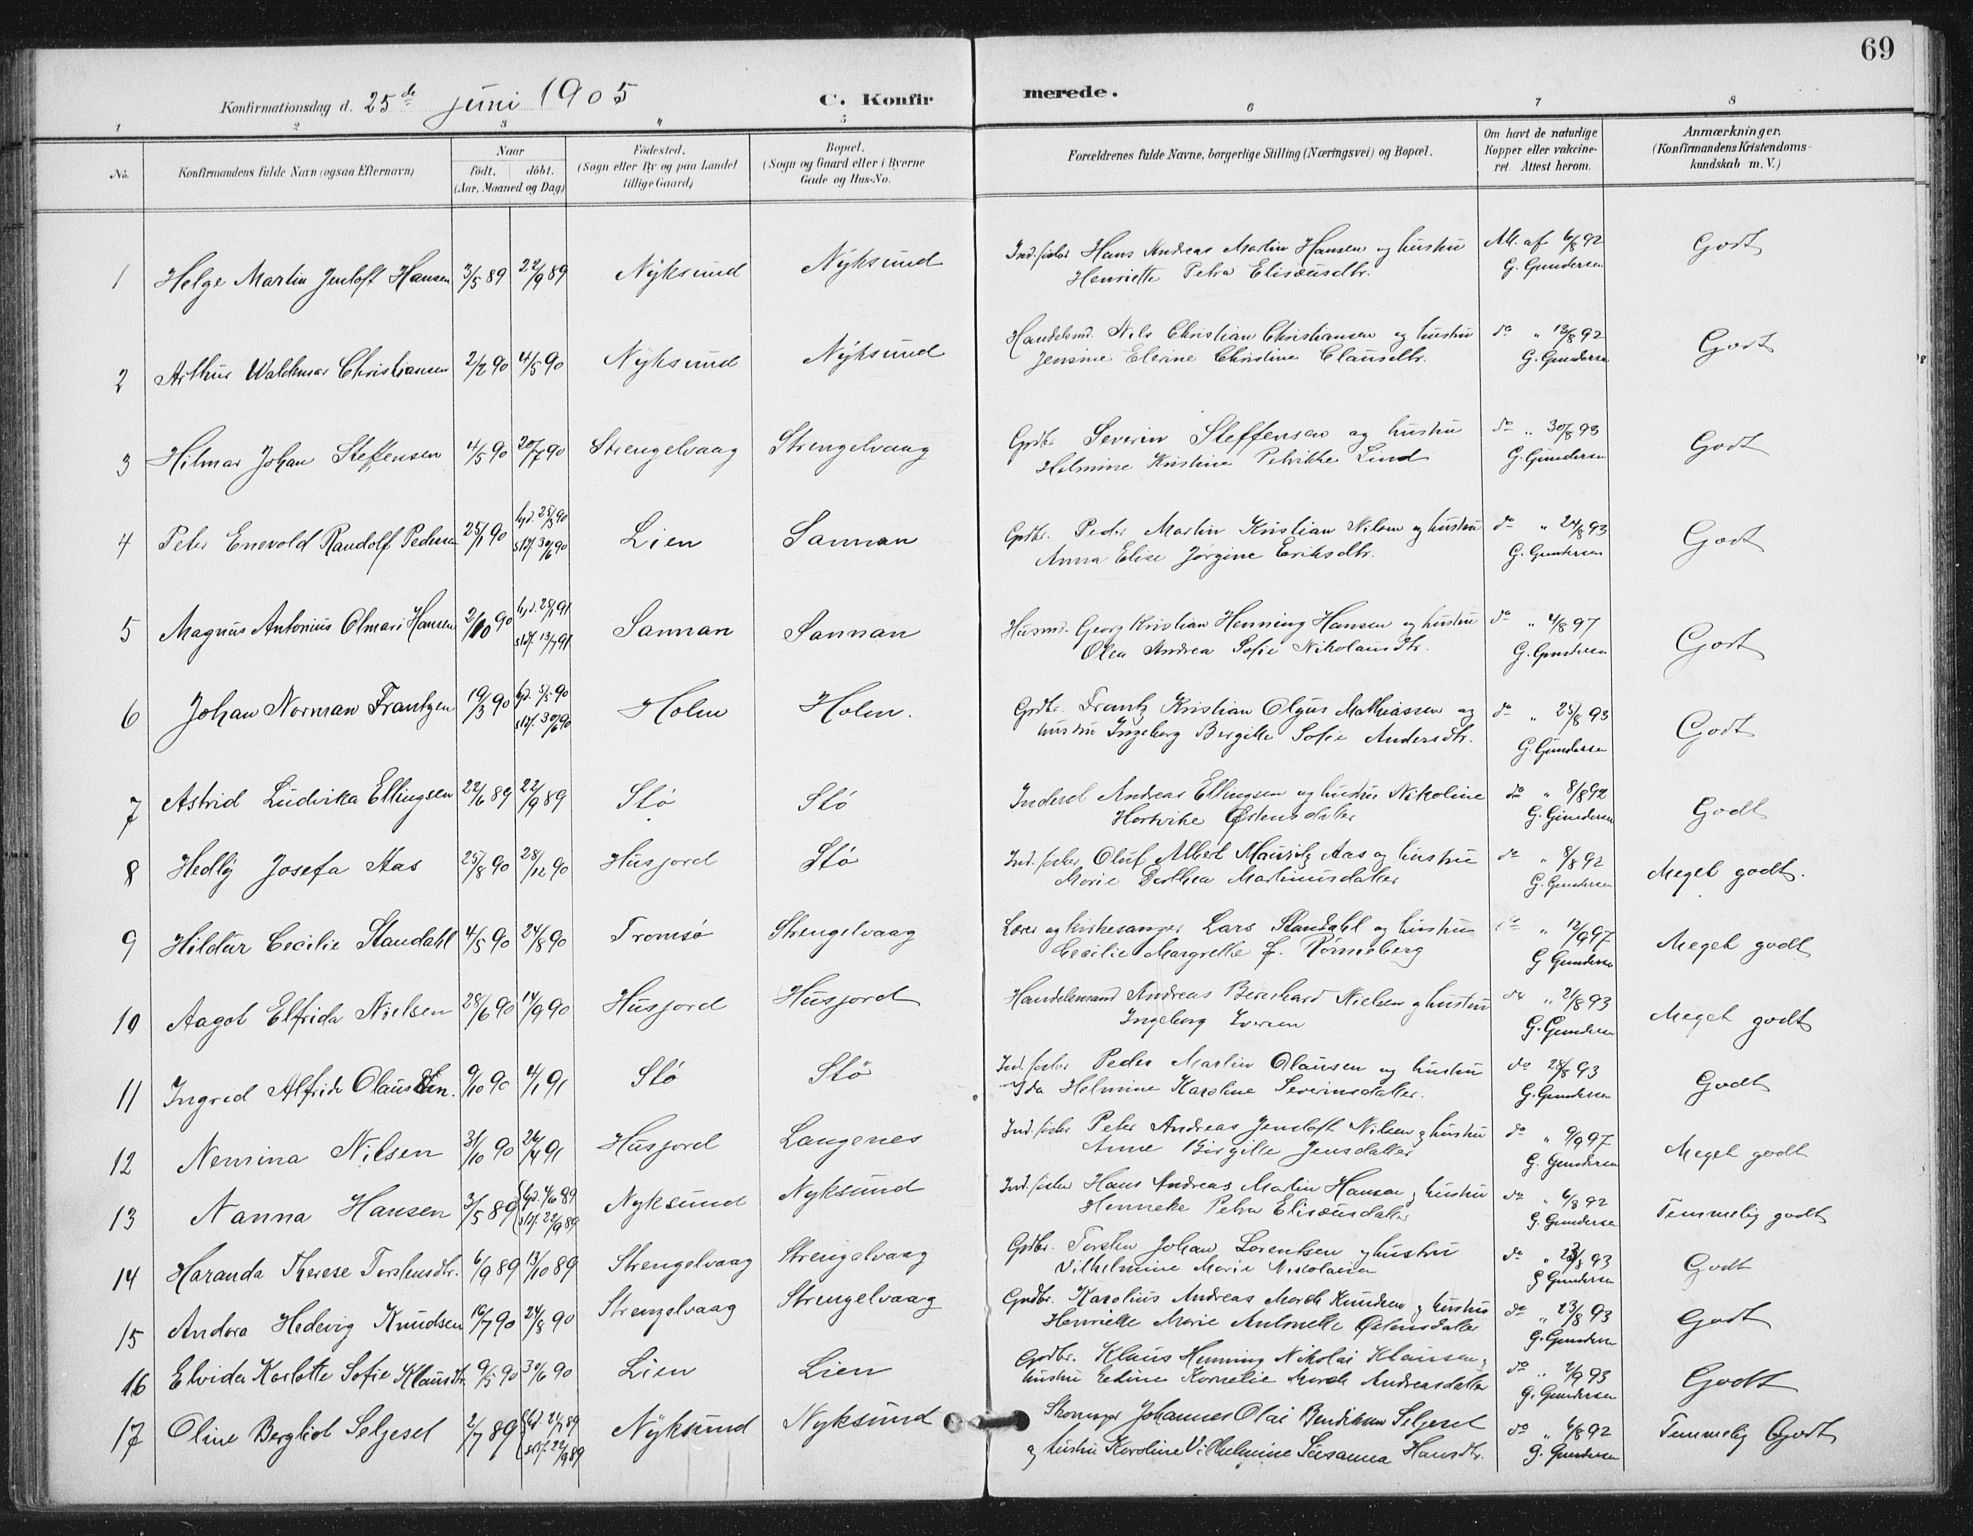 69
Konfirmationsdag d. 25de juni 1905 C. Konfirmerede.
1 2 3 4 5 6 7 8
No. Konfirmandens fulde Navn (ogsaa Efternavn) Naar födt. döbt. (Aar, Maaned og Dag) Födested. (Sogn eller By og paa Landet tillige Gaard) Bopæl. (Sogn og Gaard eller i Byerne Gade og Hus-No. Forældrenes fulde Navne, borgerlige Stilling (Næringsvei) og Bopæl. Om havt de naturlige Kopper eller vaccineret. Attest herom. Anmærkninger. (Konfirmandens Kristendomskundskab m. V.)
1 Helge Martin Jentoft Hansen 3/5 89 22/9 89 Nyksund Nyksund Ind. fisker Hans Andreas Martin Hansen og hustru Att. af 6/8 92 Godt
Henriette Petra Elisæusdtr. G. Gundersen
2 Arthur Waldemar Christiansen 2/2 90 4/5 90 Nyksund Nyksund Handelsmd. Nils Christian Christiansen og hustru do " 13/8 92 Godt
Jensine Elerine Christine Clausdtr. G. Gundersen
3 Hilmar Johan Steffensen 4/5 90 20/7 90 Strengelvaag Strengelvaag Grdbr. Severin Steffensen og hustru do " 30/8 93 Godt
Helmine Kristine Petrikke Lind G. Gundersen
4 Peter Enevold Randolf Pedersen 25/1 90 hjd. 25/3 90 Lien Sannan Grdbr. Peder Martin Kristian Nilsen og hustru do " 24/8 93 Godt
stdf. 30/6 90 Anna Elise Jørgine Eriksdtr. G. Gundersen
5 Magnus Antonius Olmari Hansen 2/10 90 hjd. 25/1 91 Sannan Sannan Husmd. Georg Kristian Henning Hansen og hustru do " 4/8 97 Godt
stdf. 13/7 91 Olea Andrea Sofie Nikolausdtr. G. Gundersen
6 Johan Norman Frantzen 19/3 90 hjd. 5/5 90 Holm Holm. Grdbr. Frantz Kristian Olgus Mathiassen og do " 25/8 93 Godt
stdf. 30/6 90 hustru Ingeborg Bergitte Sofie Andersdtr. G. Gundersen
7 Astrid Ludvika Ellingsen 22/6 89 22/9 89 Stø Stø Inderst Andreas Ellingsen og hustru Nikoline do " 8/8 92 Godt
Hartvike Østensdatter G. Gundersen
8 Hedly Josefa Aas 25/8 90 28/12 90 Husjord Stø Ind. fisker Oluf Albert Mauritz Aas og hustru do " 8/8 92 Meget godt.
Marie Dorthea Martinusdatter G. Gundersen
9 Hildur Cecilie Standahl 4/5 90 24/8 90 Tromsø Strengelvaag Lærer og kirkesanger Lars Standahl og hustru do " 12/9 97 Meget godt
Cecilie Margrethe f. Rønneberg G. Gundersen
10 Aagot Elfrida Nielsen 28/6 90 14/9 90 Husjord Husjord Handelsmand Andreas Bernhard Nielsen og hustru do " 2/8 93 Meget godt
Ingeborg Iversen G. Gundersen
11 Ingrid Alfride Olausen. 9/10 90 4/1 91 Stø Stø Ind. fisker Peder Martin Olausen og hustru do 28/8 93 Godt
Ida Helmine Karoline Severinsdatter. G. Gundersen
12 Nemina Nilsen 31/10 90 26/4 91 Husjord Langenes Ind. fisker Peter Andreas Jentoft Nilsen og hustru do " 9/9 97 Meget godt
Anne Birgitte Jensdatter G. Gundersen
13 Nanna Hansen 3/5 89 hjd. 4/6 89 Nyksund Nyksund Ind. fisker Hans Andreas Martin Hansen og hustru do " 6/8 92 Temmelig godt
stdf. 22/9 89 Henrieke Petra Elisæusdatter G. Gundersen
14 Haranda Therese Torstensdtr. 6/9 89 13/10 89 Strengelvaag Strengelvaag Grdbr. Torsten Johan Lorentsen og hustru do " 23/8 93 Godt
Vilhelmine Marie Nicolaisen G. Gundersen
15 Andora Hedevig Knudsen 16/7 90 24/8 90 Strengelvaag Strengelvaag Grdbr. Karolius Andreas Morch Knudsen og hustru do " 23/8 93 Godt
Henrikke Marie Antonette Østensdatter G. Gundersen
16 Elvida Karlotte Sofie Klausdtr. 9/5 90 30/6 90 Lien Lien Grdbr. Klaus Henning Nikolai Klausen og do " 2/9 93 Godt
hustru Edine Kornelie Morch Andreasdatter G. Gundersen
17 Oline Bergliot Seljeset 2/7 89 hjd. 21/7 89 Nyksund Nyksund Skomager Johannes Olai Bendiksen Seljeset do " 6/8 92 Temmelig Godt
stdf. 22/9 89 og hustru Karoline Vilhelmine Susanna Hansdtr. G. Gundersen